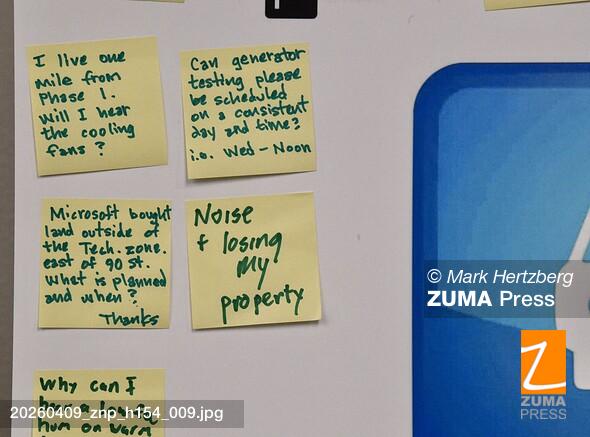 I live one
mile from
Phase 1.
Will I hear
the cooling
fans?
Can generator
testing please
be scheduled
on a consistent
day and time?
i.e. Wed - Noon
Microsoft bought
land outside of
the Tech. zone.
east of 90 st.
What is planned
and when?
Thanks
Noise
+ losing
my
property
Why can I
hum on warm
© Mark Hertzberg
ZUMA Press
20260409_znp_h154_009.jpg
Z
ZUMA
PRESS